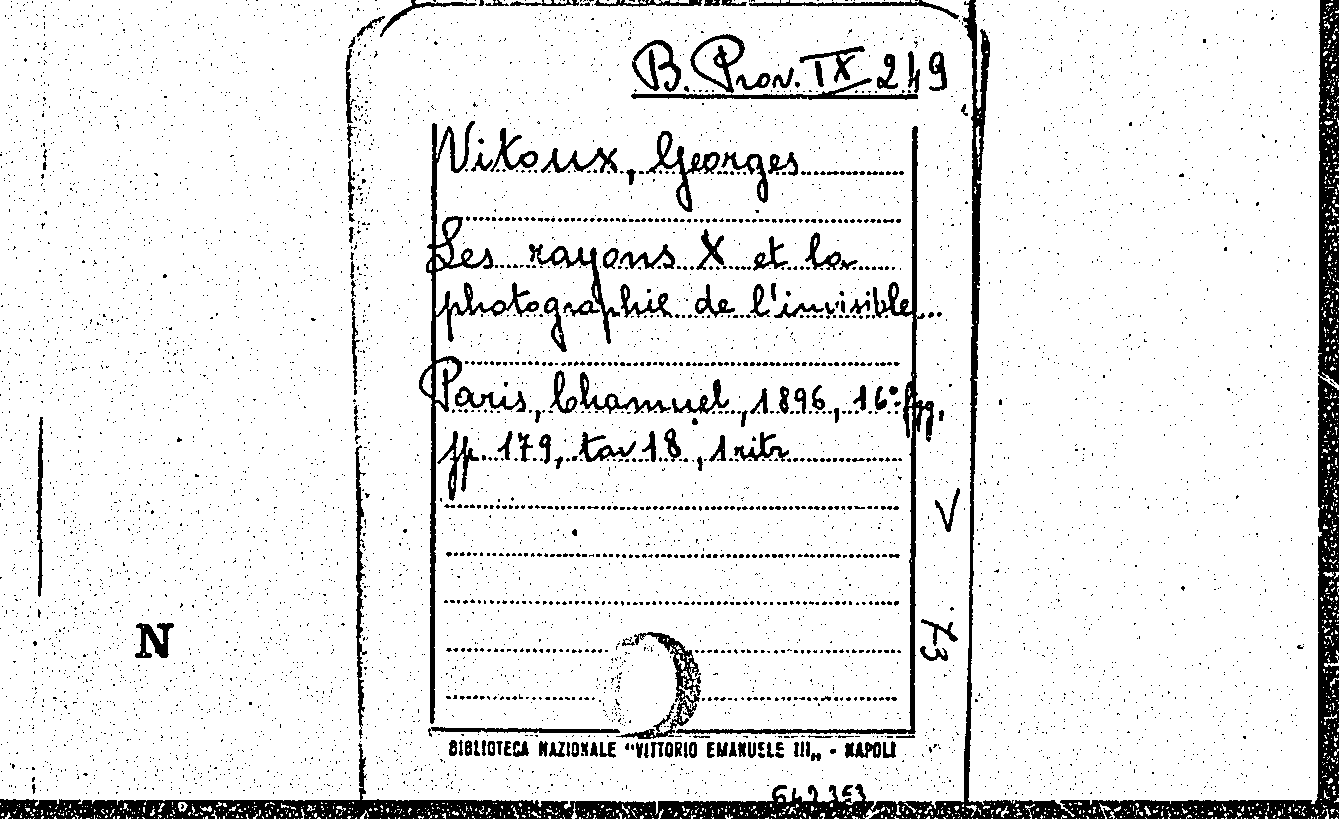 B. Prov. IX 249
Vitoux, Georges
Les rayons X et la
photographie de l'invisible...
Paris, Chamuel, 1896, 16° fig.
pp. 179, tav 18, 1 ritr
V
73
N
BIBLIOTECA NAZIONALE "VITTORIO EMANUELE III„ - NAPOLI